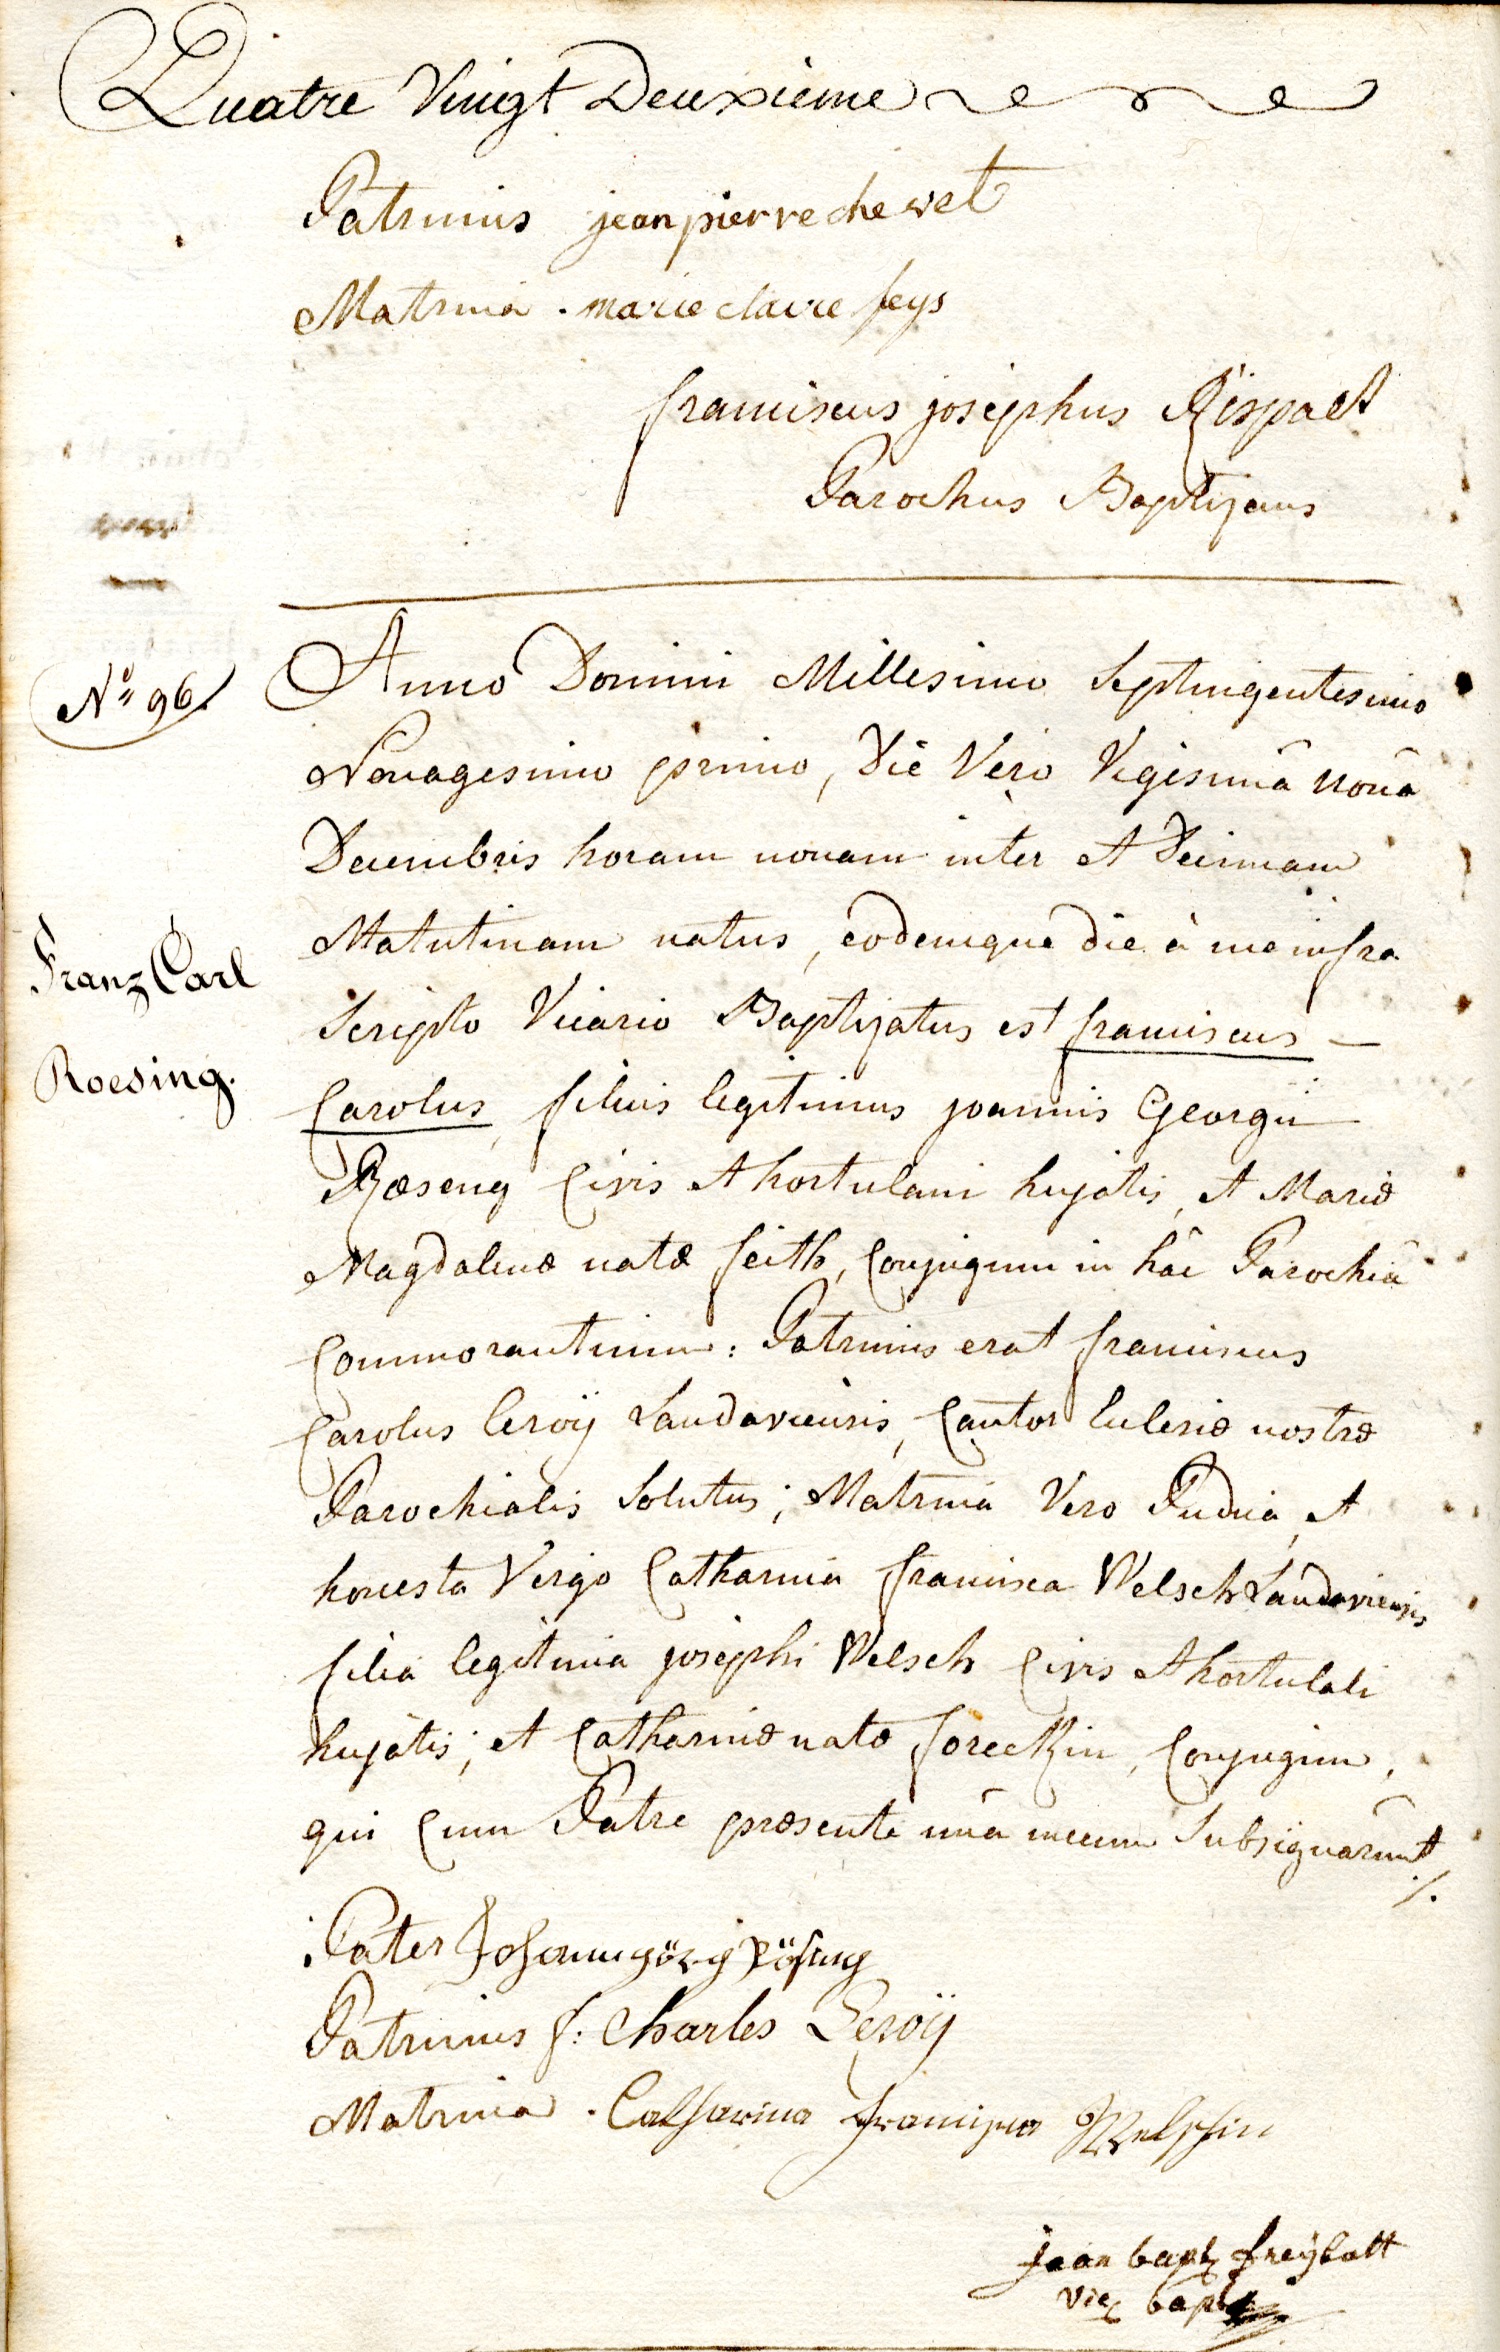 Quatre Vingt Deuxieme
Patrinus jean pierre chewet
Matrina . marie claire feys
franciscus josephus Rispact
Parochus Baptizans
No 96.
Anno Domini Millesimo Septingentesimo
Nonagesimo primo, Die Vero Vigesimâ nonâ
Decembris horam nonam inter et Decimam
Matutinam natus, eodemque die à me infra
Franz Carl
Scripto Vicario Baptizatus est franciscus –
Roesing.
Carolus, filius legitimus joannis Georgii
Rœseng Civis et hortulani hujatis, et Mariæ
Magdalenæ natæ feith, Conjugum in hâc Parochiâ
Commorantium: Patrinus erat franciscus
Carolus leroÿ Landaviensis, Cantor Eclesiæ nostræ
Parochialis Solutus; Matrina Vero Pudica, et
honesta Virgo Catharina francisca Welsch Landaviensis
filia legitima josephi Welsch Civis et hortulali
hujatis; et Catharinæ natæ foreckin, Conjugum,
qui Cum Patre præsente unâ mecum Subsignarunt
./.
Pater Johann görg Rösing
Patrinus f: Charles Leroÿ
Matrina . Catharina Francisca Welschin
jean bapt freÿbott
vic bapt